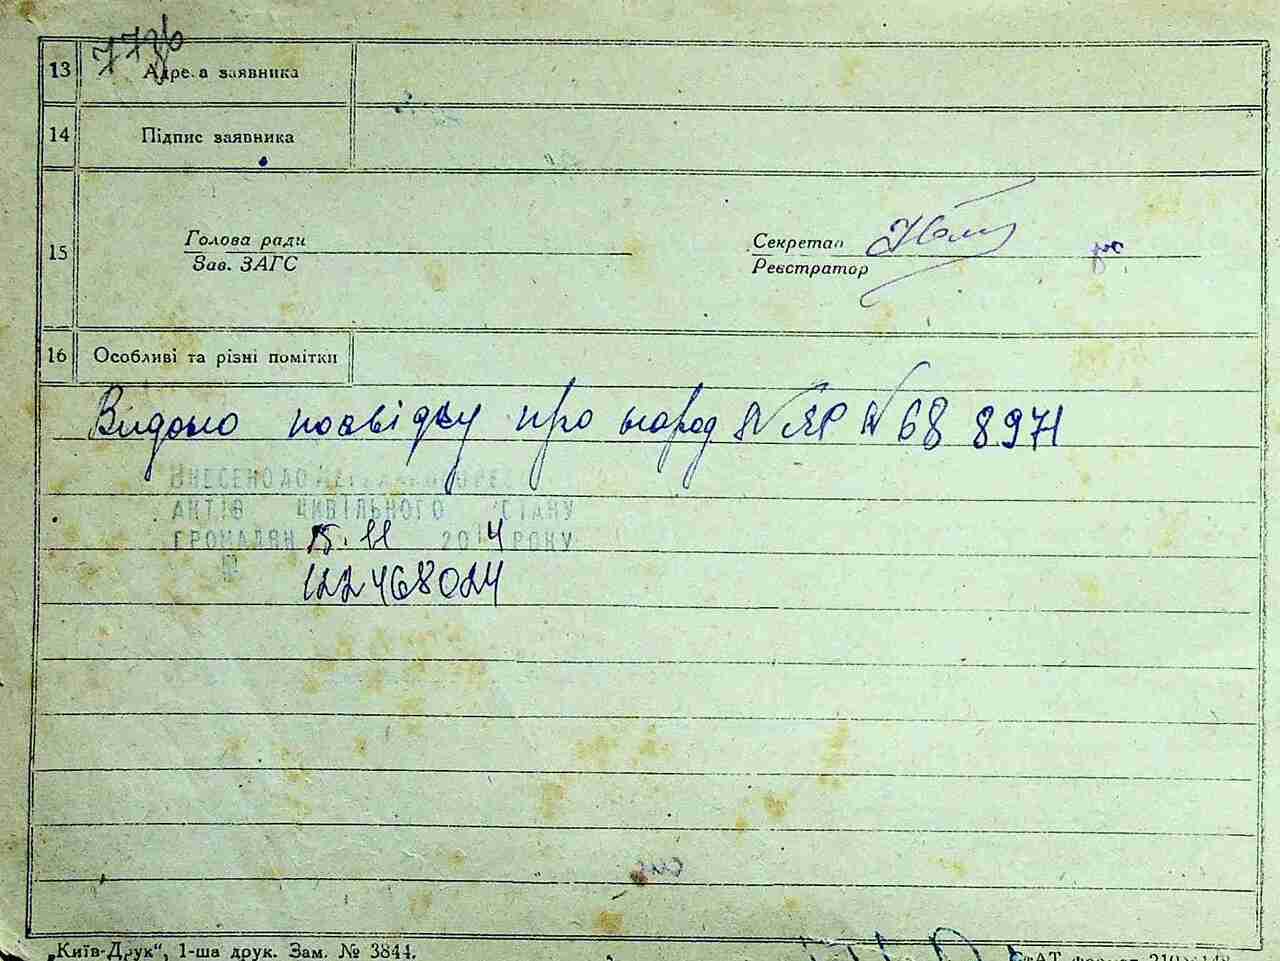 13 Адреса заявника
14 Підпис заявника
15
Голова ради
Зав. ЗАГС
Секретар
Реєстратор
16 Особливі та різні помітки
Видано посвідку про народ ЯР № 68 8971
ВНЕСЕНО ДО ДЕРЖАВНОГО РЕЄ
АКТІВ ЦИВІЛЬНОГО СТАНУ
ГРОМАДЯН 15.11 2014 РОКУ
122468024
„Київ-Друк“, 1-ша друк. Зам. № 3844.